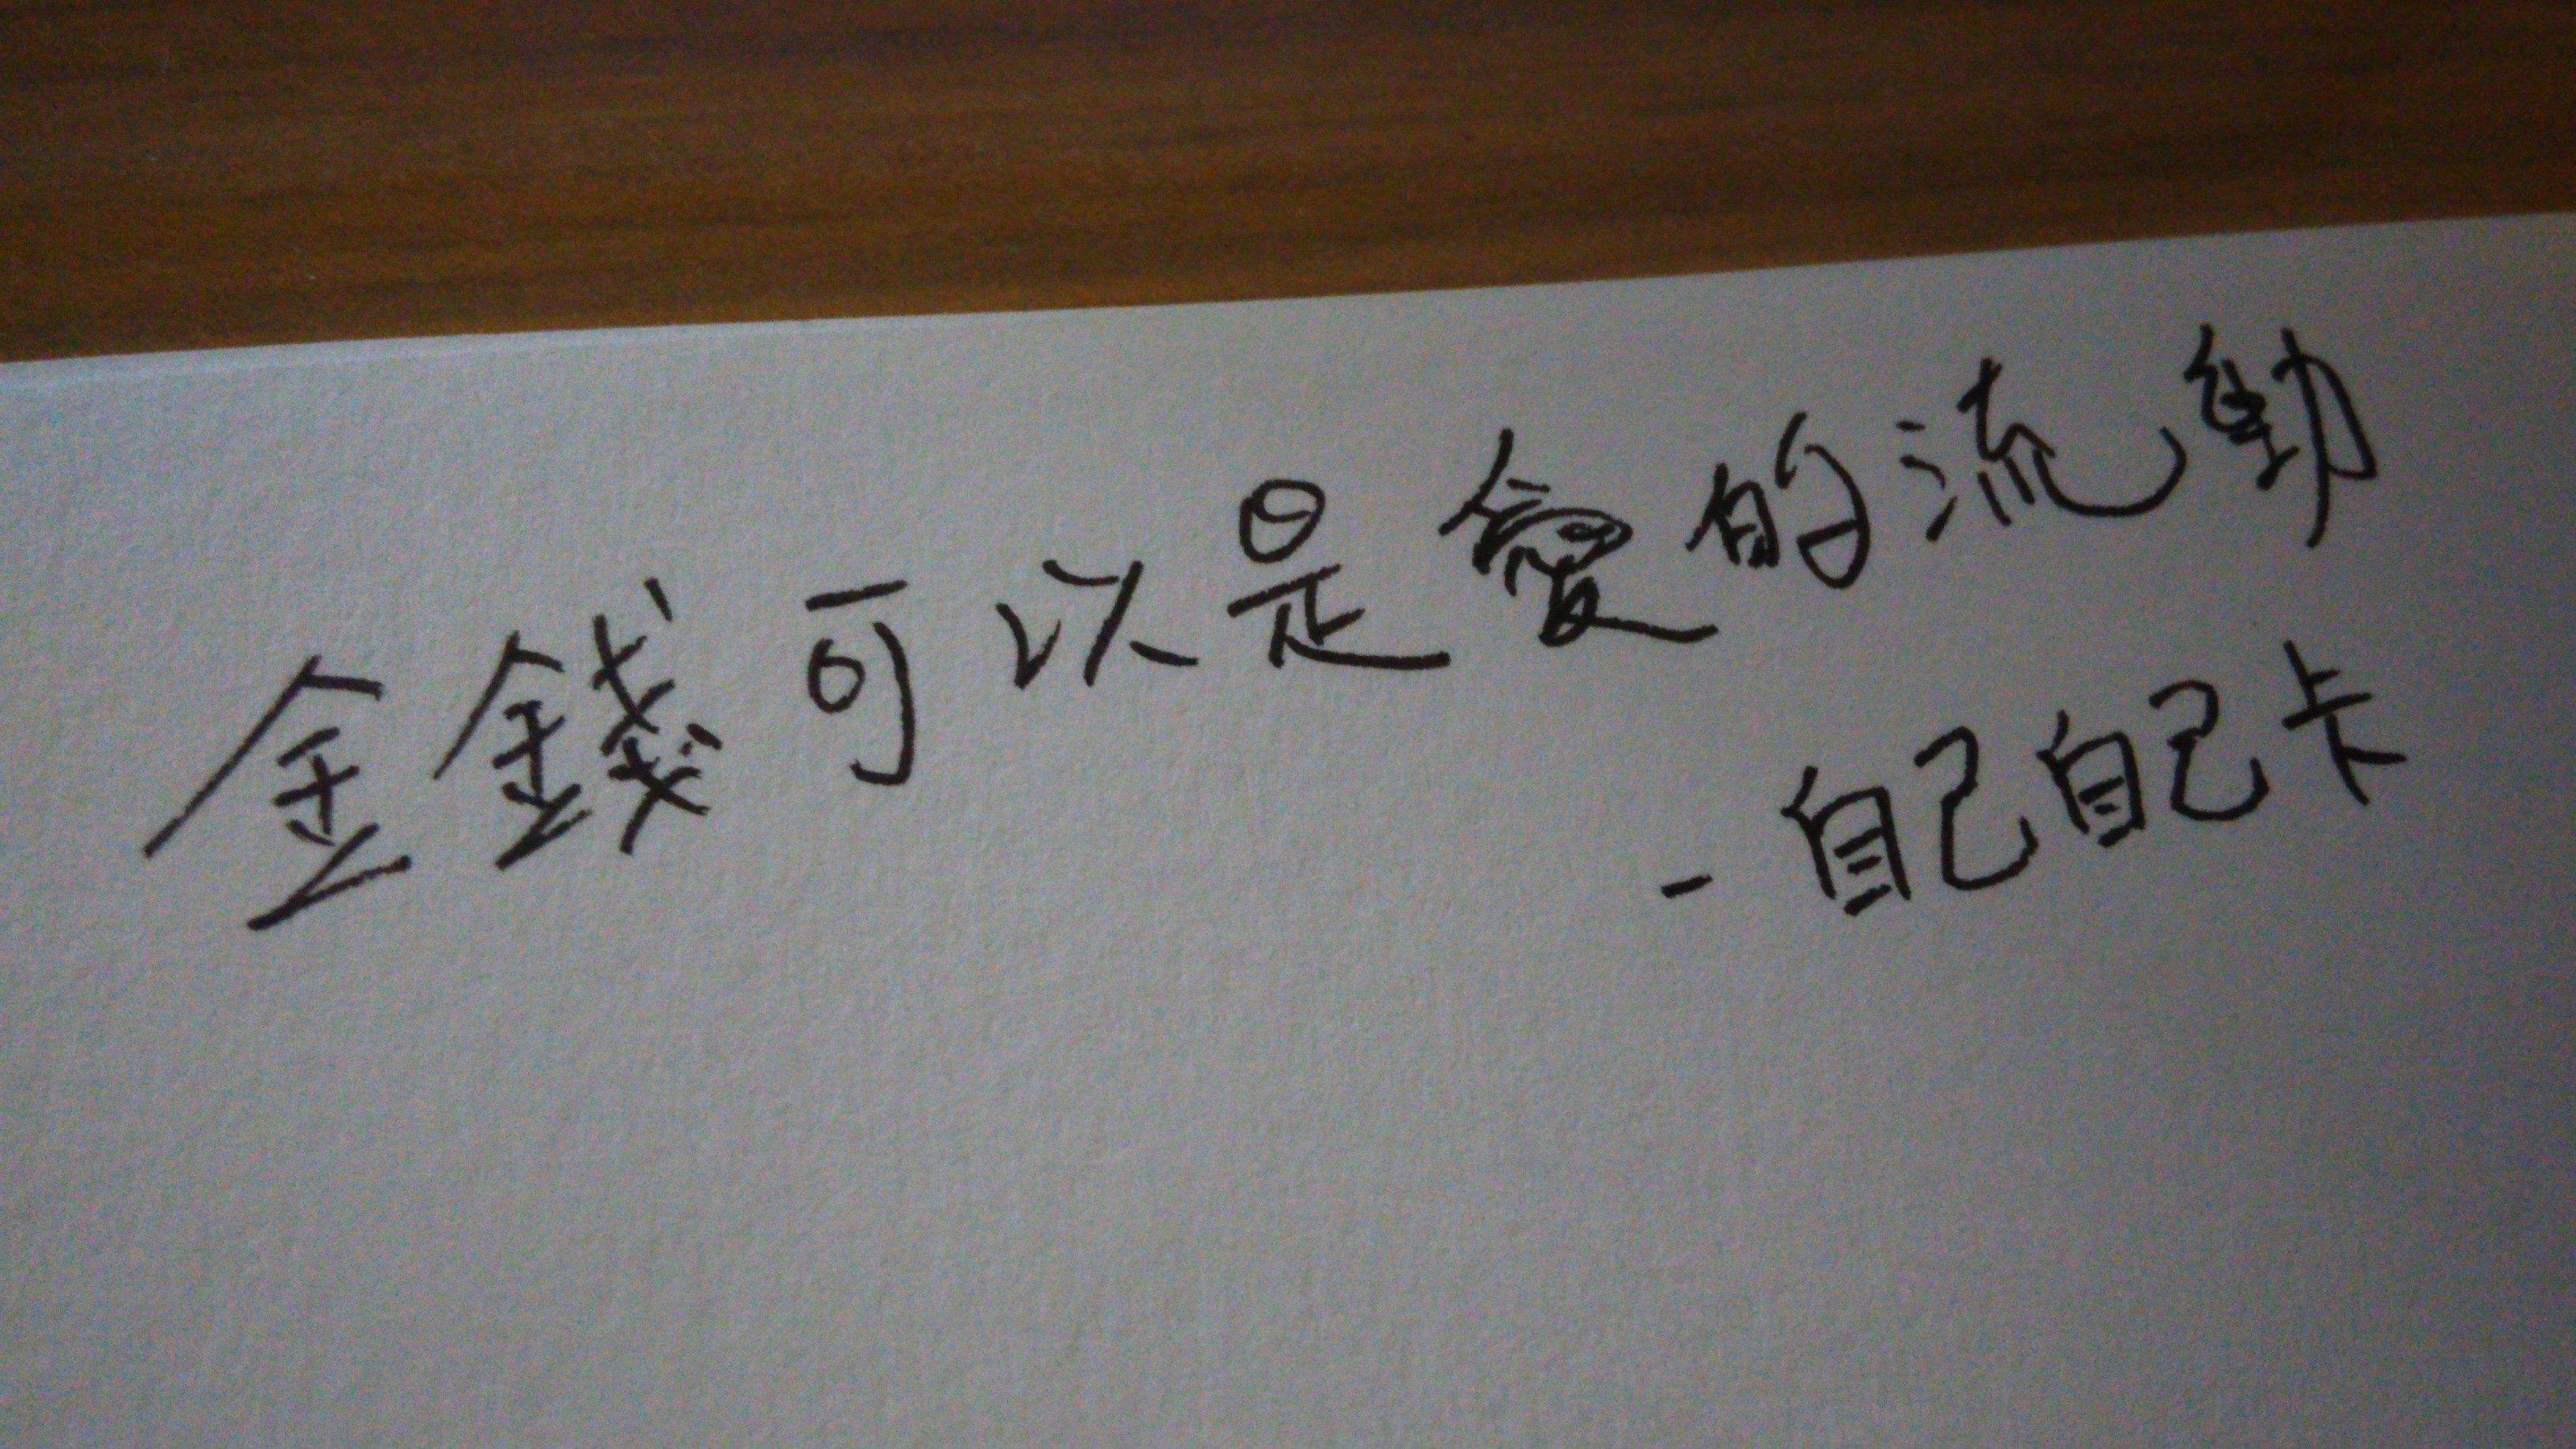 金錢可以是愛的流動
-自己自己卡